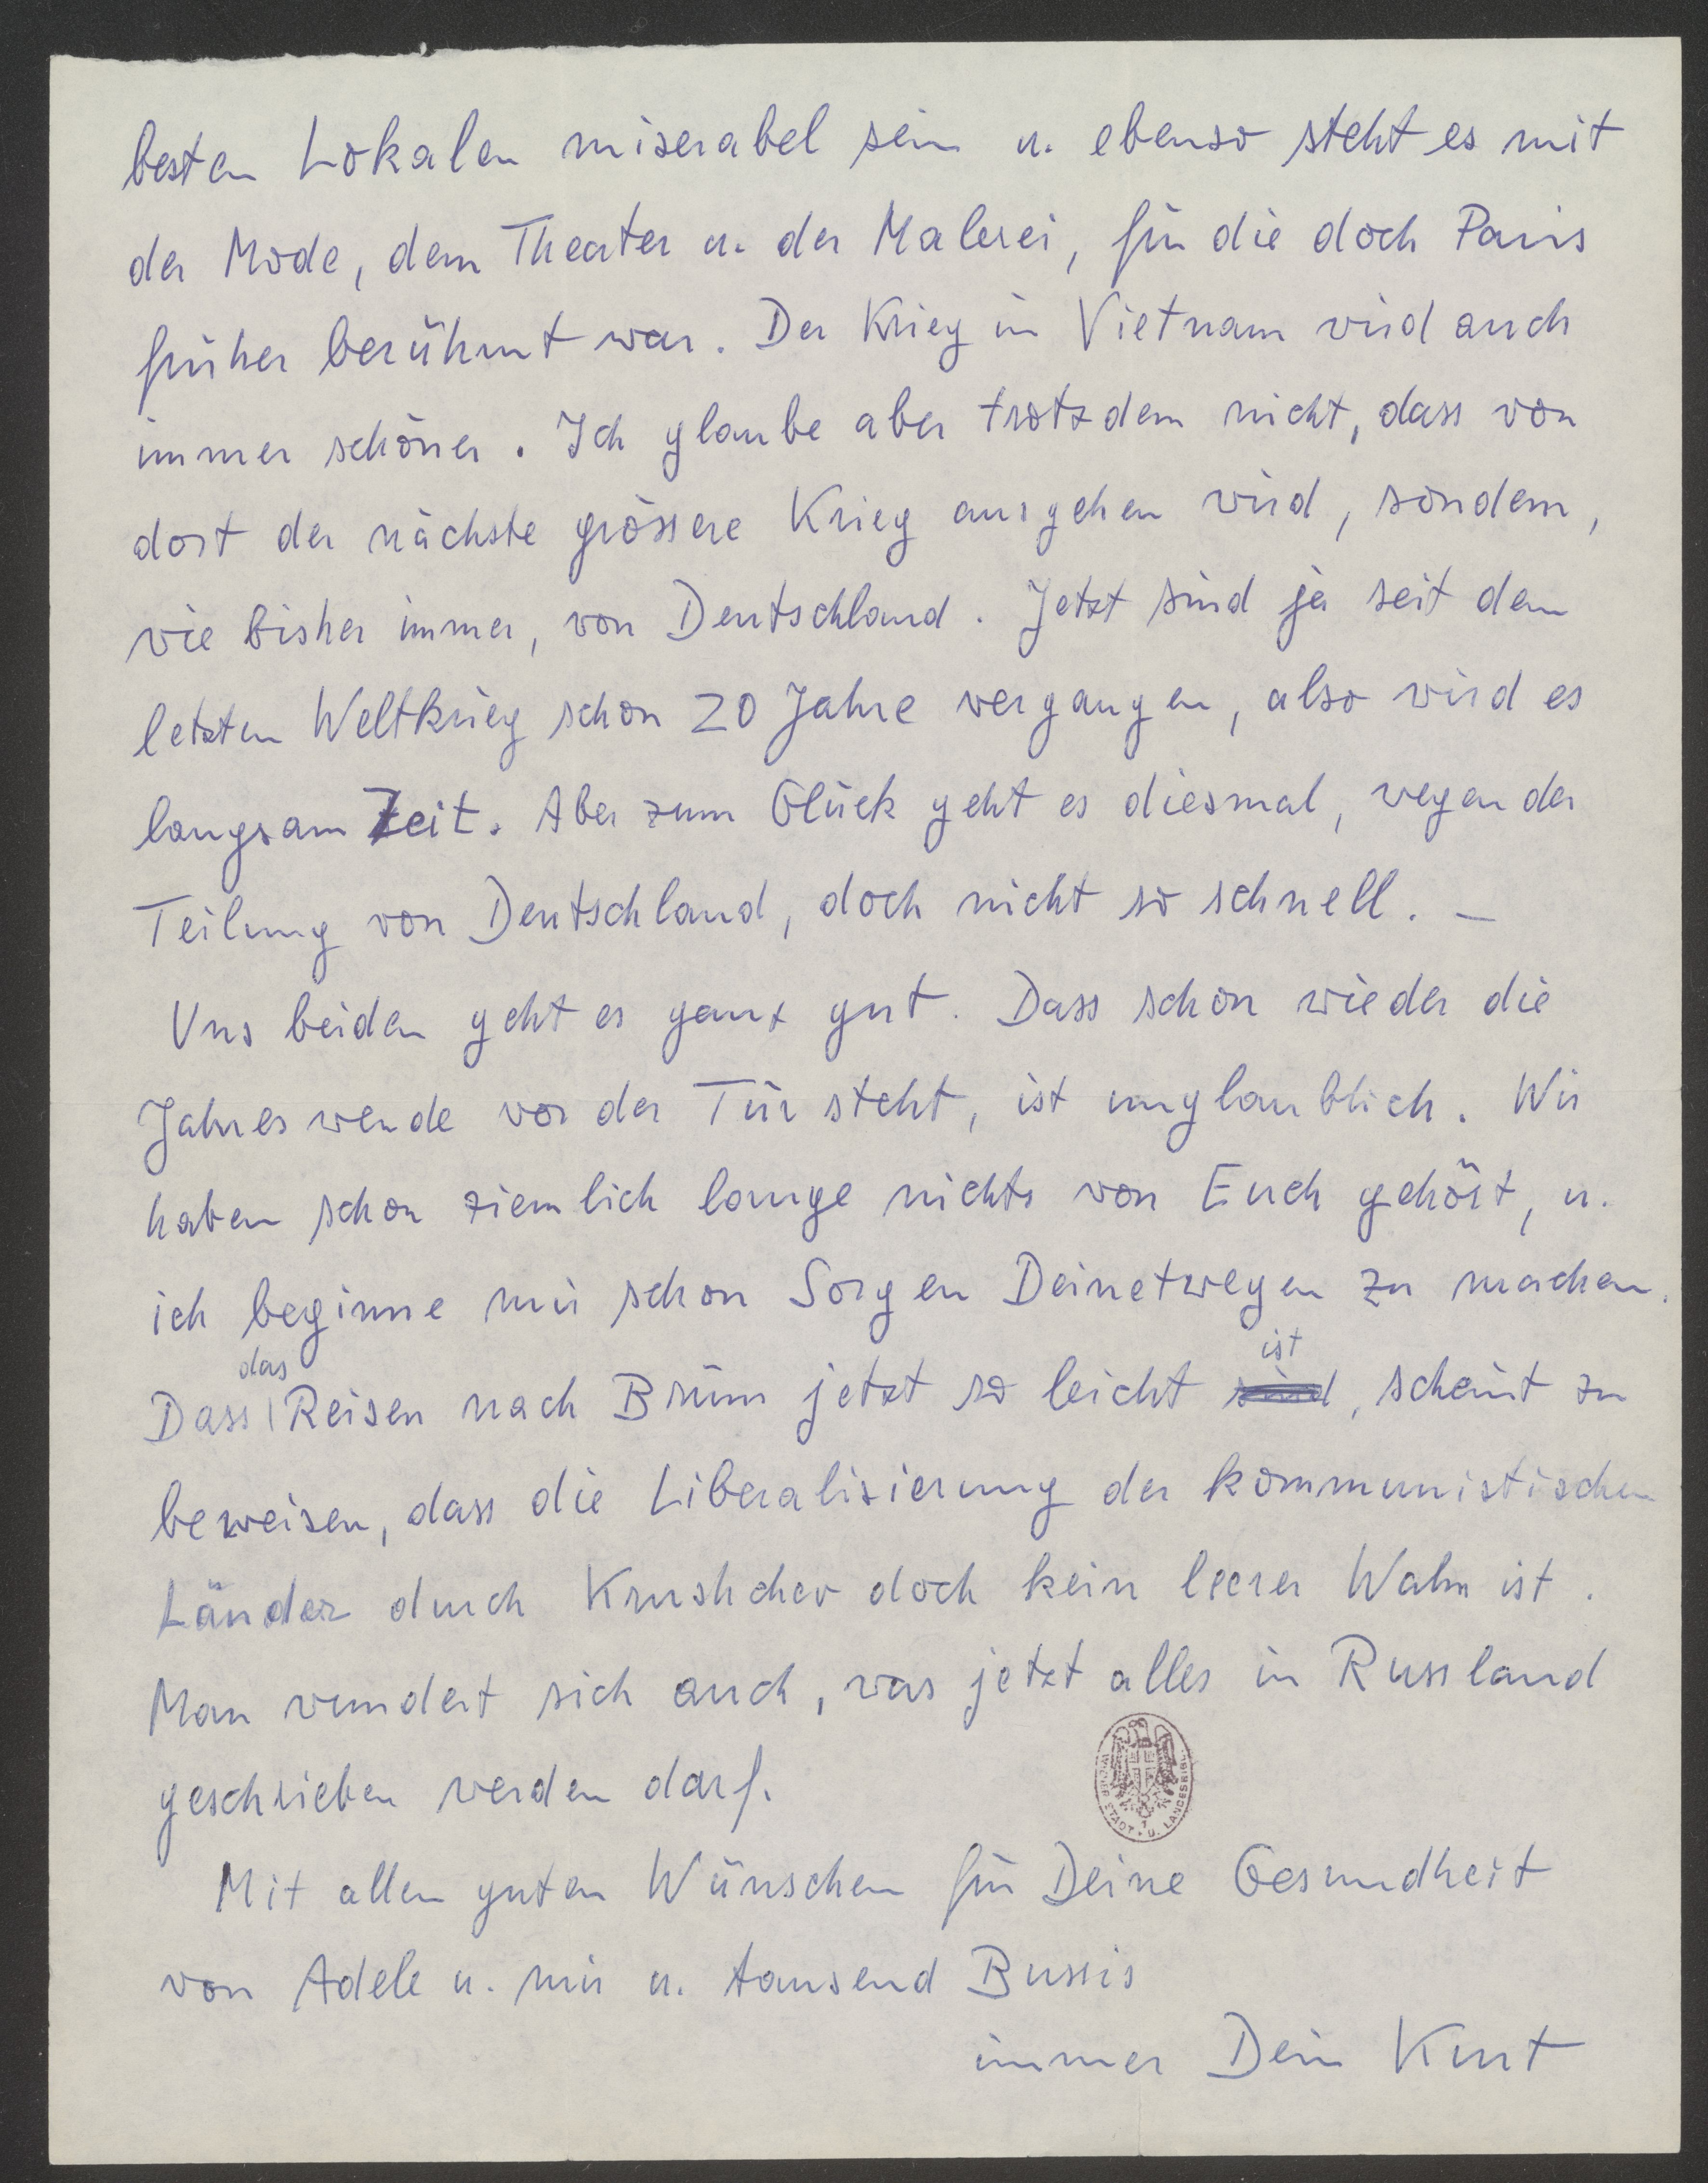 besten Lokalen miserabel sein u. ebenso steht es mit
der Mode, dem Theater u. der Malerei, für die doch Paris
früher berühmt war. Der Krieg in Vietnam wird auch
immer schöner. Ich glaube aber trotzdem nicht, dass von
dort der nächste grössere Krieg ausgehen wird, sondern,
wie bisher immer, von Deutschland. Jetzt sind ja seit dem
letzten Weltkrieg schon 20 Jahre vergangen, also wird es
langsam Zeit. Aber zum Glück geht es diesmal, wegen der
Teilung von Deutschland, doch nicht so schnell. –
Uns beiden geht es ganz gut. Dass schon wieder die
Jahreswende vor der Tür steht, ist unglaublich. Wir
haben schon ziemlich lange nichts von Euch gehört, u.
ich beginne mir schon Sorgen Deinetwegen zu machen.
Dass das Reisen nach Brünn jetzt so leicht ist, scheint zu
beweisen, dass die Liberalisierung der kommunistischen
Länder durch Krushchev doch kein leerer Wahn ist.
Man wundert sich auch, was jetzt alles in Russland
geschrieben werden darf.
WIENER STADT- U. LANDESBIBL.
Mit allen guten Wünschen für Deine Gesundheit
von Adele u. mir u. tausend Bussis
immer Dein Kurt